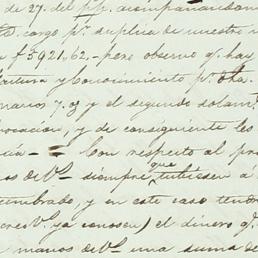 de 27. del pp. acompañandome
cargo pr. suplica de nuestro
f 5921,62,- pero observo q. hay
factura y Conocimiento pr. ota.
7. oz y el segundo solamte.
y de consiguiente les
Con respecto al pr
os de Vs. siempre que tubiesen a
cumbrado, y en este caso tendr
ya conocen) el dinero q.
manos de Vs. una suma de